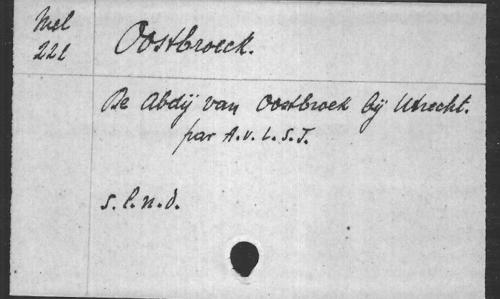 Mel
222
Oostbroeck.
De Abdij van Oostbroek bij Utrecht.
par A.v.L.S.J.
s.l.n.d.